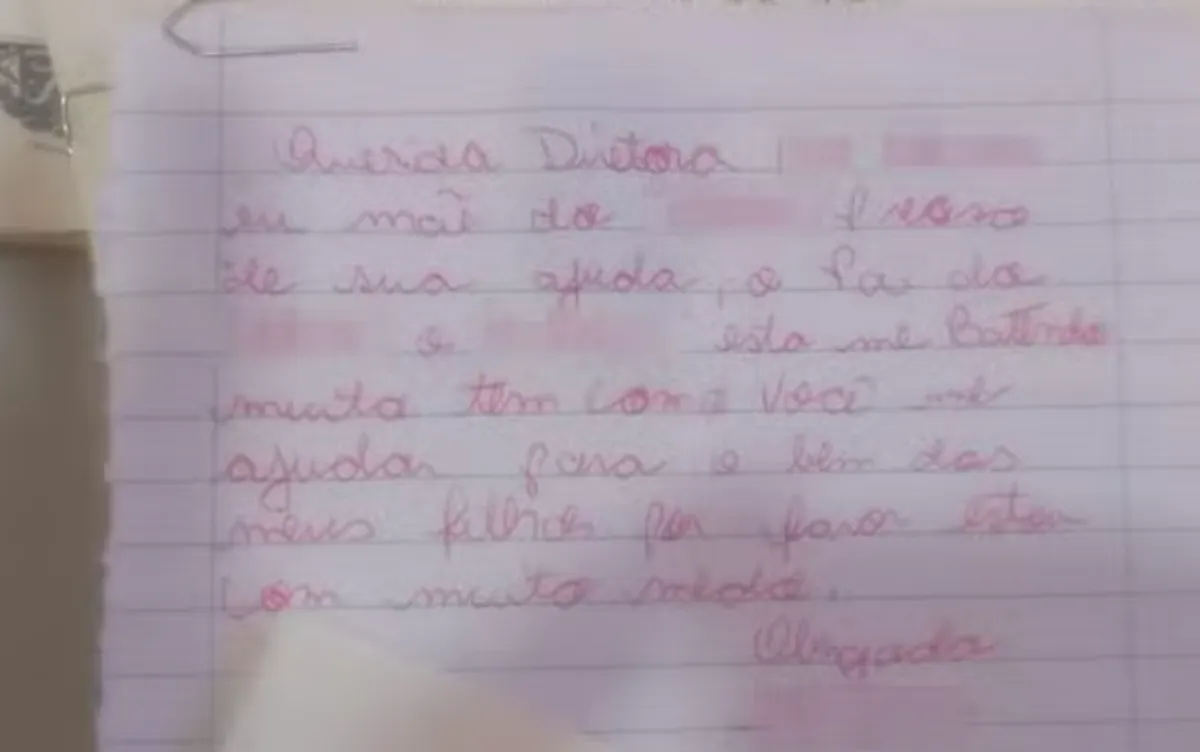 Querida Diretora
eu mãi do preciso
de sua ajuda, o pai do
e esta me Batendo
muito tem como você me
ajudar para o bem dos
meus filhos por favor estou
com muito medo.
Obrigada